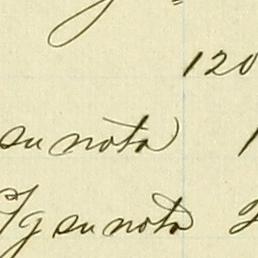 120
su nota
/g su nota 2